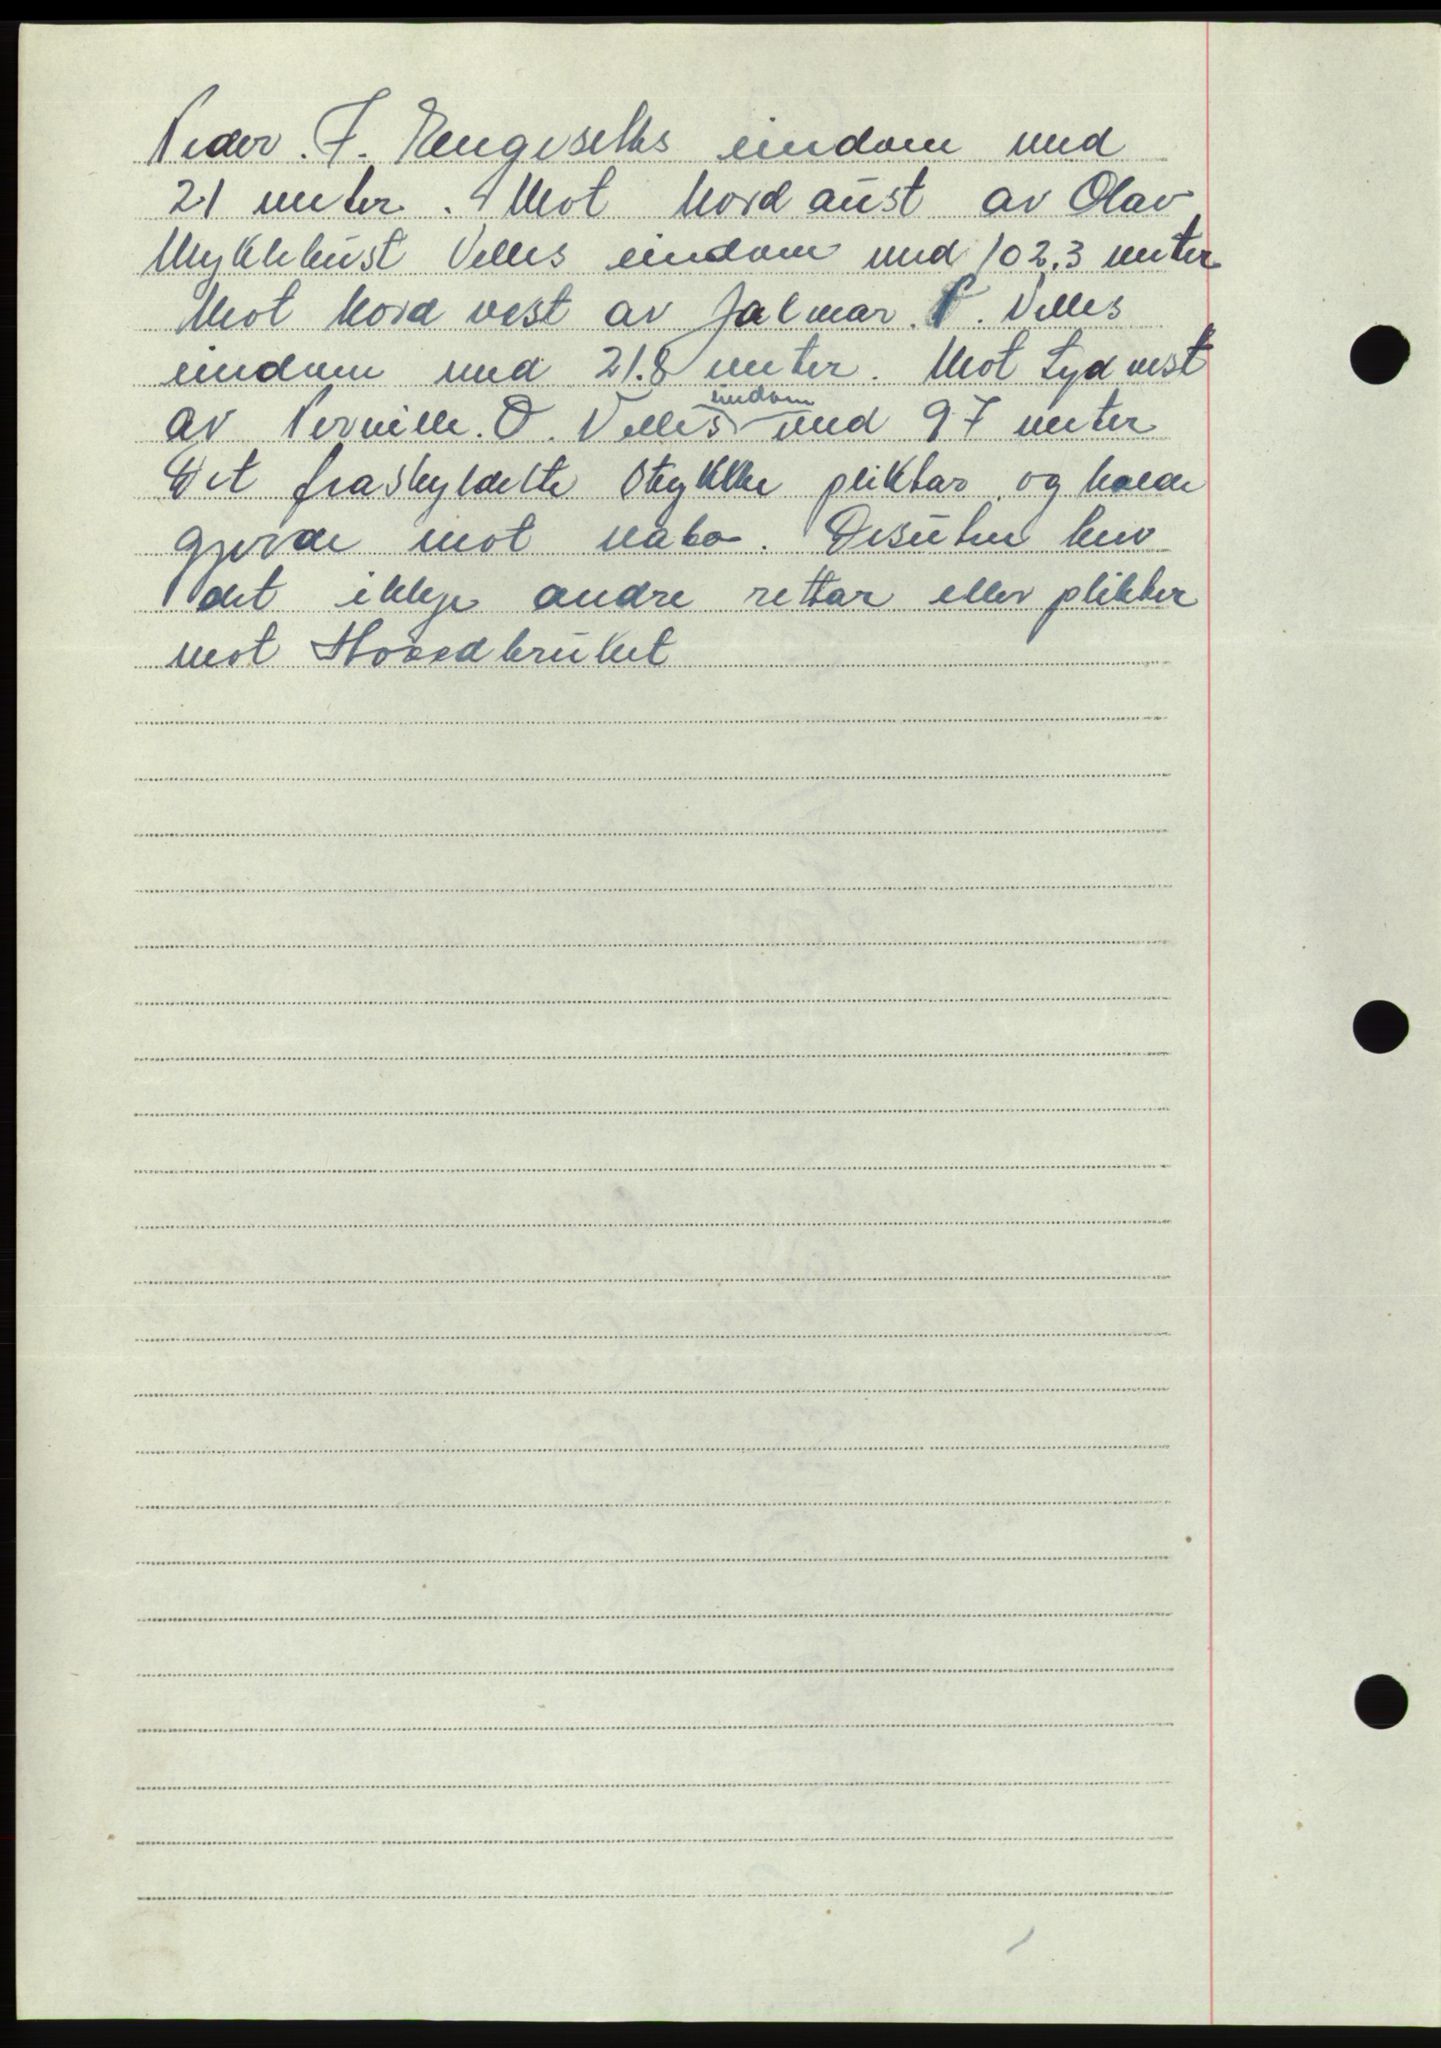 Peder. F. Engesetts eindom med
21 meter. Mot Nord aust av Olav
Myklebust Velles eindom med 102.3 meter
Mot Nord vest av Jalmar. P. Velles
eindom med 21.8 meter. Mot syd vest
eindom
av Pernille. O. Velles med 97 meter
Det fraskyldelte stykkke pliktar og holde
gjerde mot nabo. Desuten hev
det ikkje andre rettar eller plikter
mot Hovedbruket